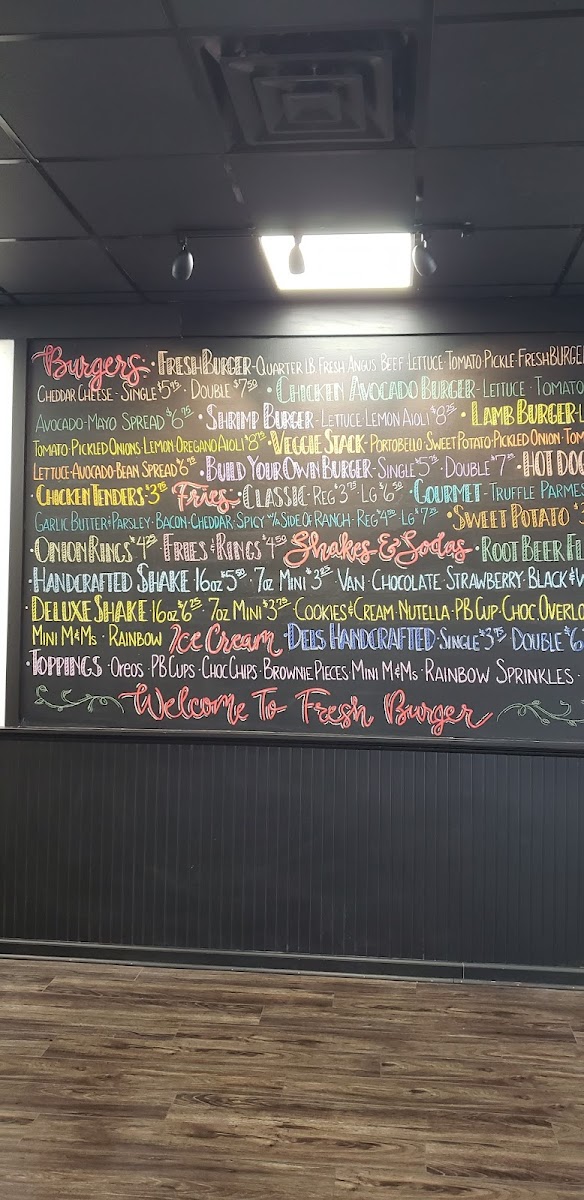 Burgers · FRESH BURGER - QUARTER LB FRESH ANGUS BEEF LETTUCE · TOMATO PICKLE · FRESH BURGER
CHEDDAR CHEESE · SINGLE $5 · DOUBLE $7 · CHICKEN AVOCADO BURGER - LETTUCE · TOMATO
AVOCADO - MAYO SPREAD $6 · SHRIMP BURGER - LETTUCE LEMON AIOLI $8 · LAMB BURGER -
TOMATO · PICKLED ONIONS · LEMON · OREGANO AIOLI $8 · VEGGIE STACK · PORTOBELLO · SWEET POTATO · PICKLED ONION ·
LETTUCE · AVOCADO · BEAN SPREAD $6 · BUILD YOUR OWN BURGER · SINGLE $5 · DOUBLE $7 · HOT DOG
· CHICKEN TENDERS $3 Fries · CLASSIC · REG $3 LG $6 · GOURMET · TRUFFLE PARMES
GARLIC BUTTER & PARSLEY · BACON · CHEDDAR · SPICY W/A SIDE OF RANCH · REG $4 · LG $7 · SWEET POTATO
· ONION RINGS $4 · FRIES & RINGS $4 Shakes & Sodas · ROOT BEER FL
· HANDCRAFTED SHAKE 16OZ $5 · 7OZ MINI $3 · VAN · CHOCOLATE · STRAWBERRY · BLACK & W
· DELUXE SHAKE 16OZ $6 · 7OZ MINI $3 · COOKIES & CREAM · NUTELLA · PB CUP · CHOC. OVERLO
MINI M&MS · RAINBOW Ice Cream · DELS HANDCRAFTED · SINGLE $3 DOUBLE $6
· TOPPINGS · OREOS · PB CUPS · CHOC CHIPS · BROWNIE PIECES MINI M&MS · RAINBOW SPRINKLES ·
Welcome To Fresh Burger